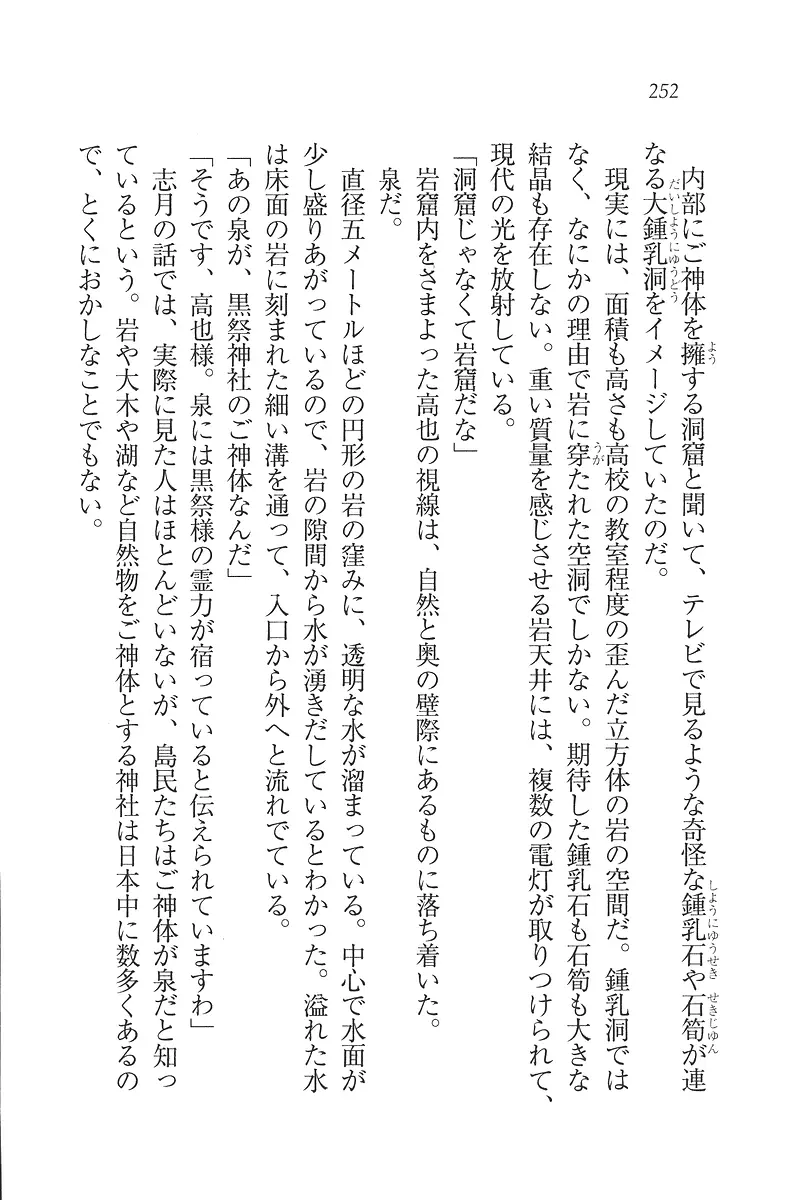 252
内部にご神体を擁する洞窟と聞いて、テレビで見るような奇怪な鍾乳石や石筍が連
なる大鍾乳洞をイメージしていたのだ。
現実には、面積も高さも高校の教室程度の歪んだ立方体の岩の空間だ。鍾乳洞では
なく、なにかの理由で岩に穿たれた空洞でしかない。期待した鍾乳石も石筍も大きな
結晶も存在しない。重い質量を感じさせる岩天井には、複数の電灯が取りつけられて、
現代の光を放射している。
「洞窟じゃなくて岩窟だな」
岩窟内をさまよった高也の視線は、自然と奥の壁際にあるものに落ち着いた。
泉だ。
直径五メートルほどの円形の岩の窪みに、透明な水が溜まっている。中心で水面が
少し盛りあがっているので、岩の隙間から水が湧きだしているとわかった。溢れた水
は床面の岩に刻まれた細い溝を通って、入口から外へと流れでている。
「あの泉が、黒祭神社のご神体なんだ」
「そうです、高也様。泉には黒祭様の霊力が宿っていると伝えられていますわ」
志月の話では、実際に見た人はほとんどいないが、島民たちはご神体が泉だと知っ
ているという。岩や大木や湖など自然物をご神体とする神社は日本中に数多くあるの
で、とくにおかしなことでもない。